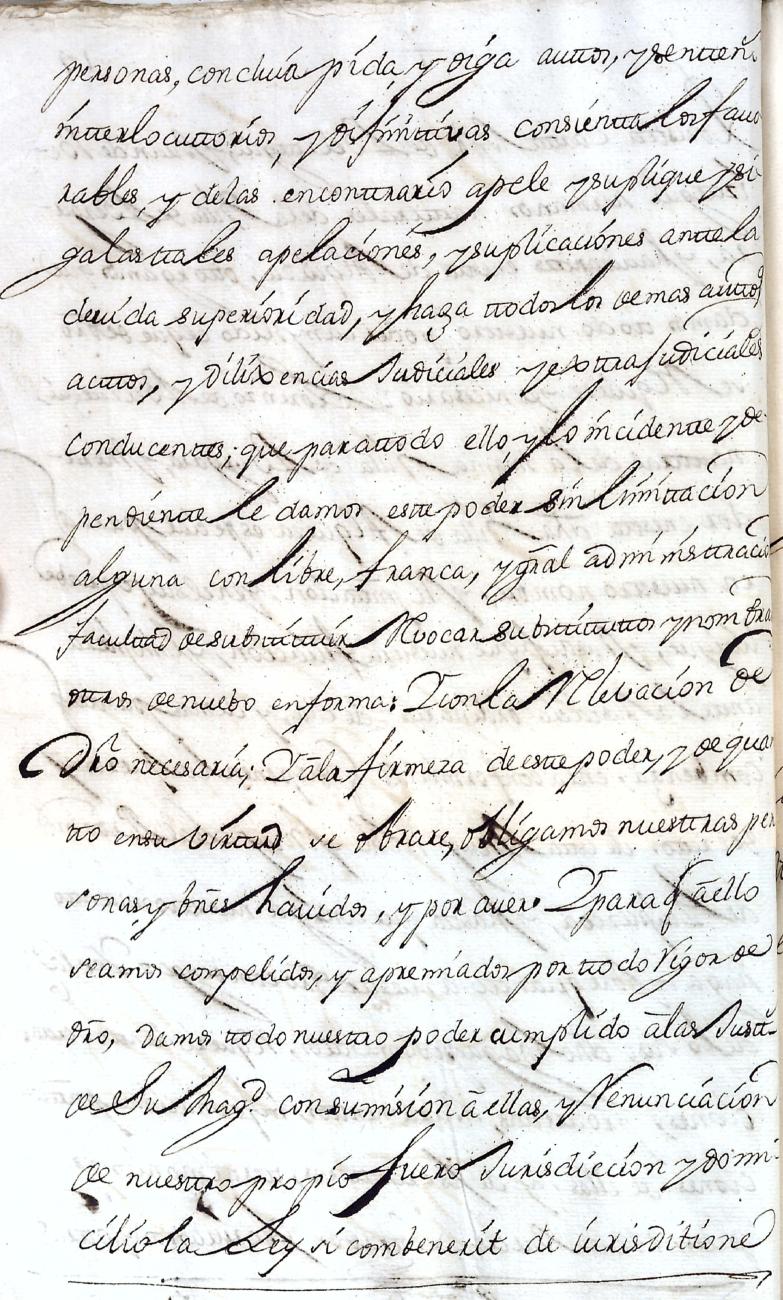 personas, concluía pída, y oíga auttos, y senttenˢ
íntterlocuttoríos, y dífiníttivas consíentta los favo
rables, y delas encontrarío apele y suplíque y sí
galas ttales apelacíones, y suplicacíones antte la
devída superíorídad, y haga ttodos los demas auttos
acttos, y dilixencías Judicíales y extraJudicíales
conducenttes; que para ttodo ello, y lo íncidentte y de
pendíentte le damos estte poder sín límíttacíon
alguna con líbre, franca, y grãl admínísttracio
facultad de substtittuír Revocar substtittuttos y nombrar
ottros de nuebo en forma; Y con la Relevacíon de
Drõ necesaría; Y â la fírmeza de estte poder, y de quan
tto en su Vírttud se obrare, oblígamos nuesttras per
sonas y bnẽs havídos, y por aver. Y para q̃ â ello
seamos compelídos, y apremíados por ttodo Vígor de
drõ, Damos ttodo nuesttro poder cumplído â las Justtˢ
de Su Magᵈ. con sumisíon â ellas, y Renuncíacíon
de nuesttro propío fuero Jurisdiccíon y domí-
cilío la Ley si combenerít de iurisditione